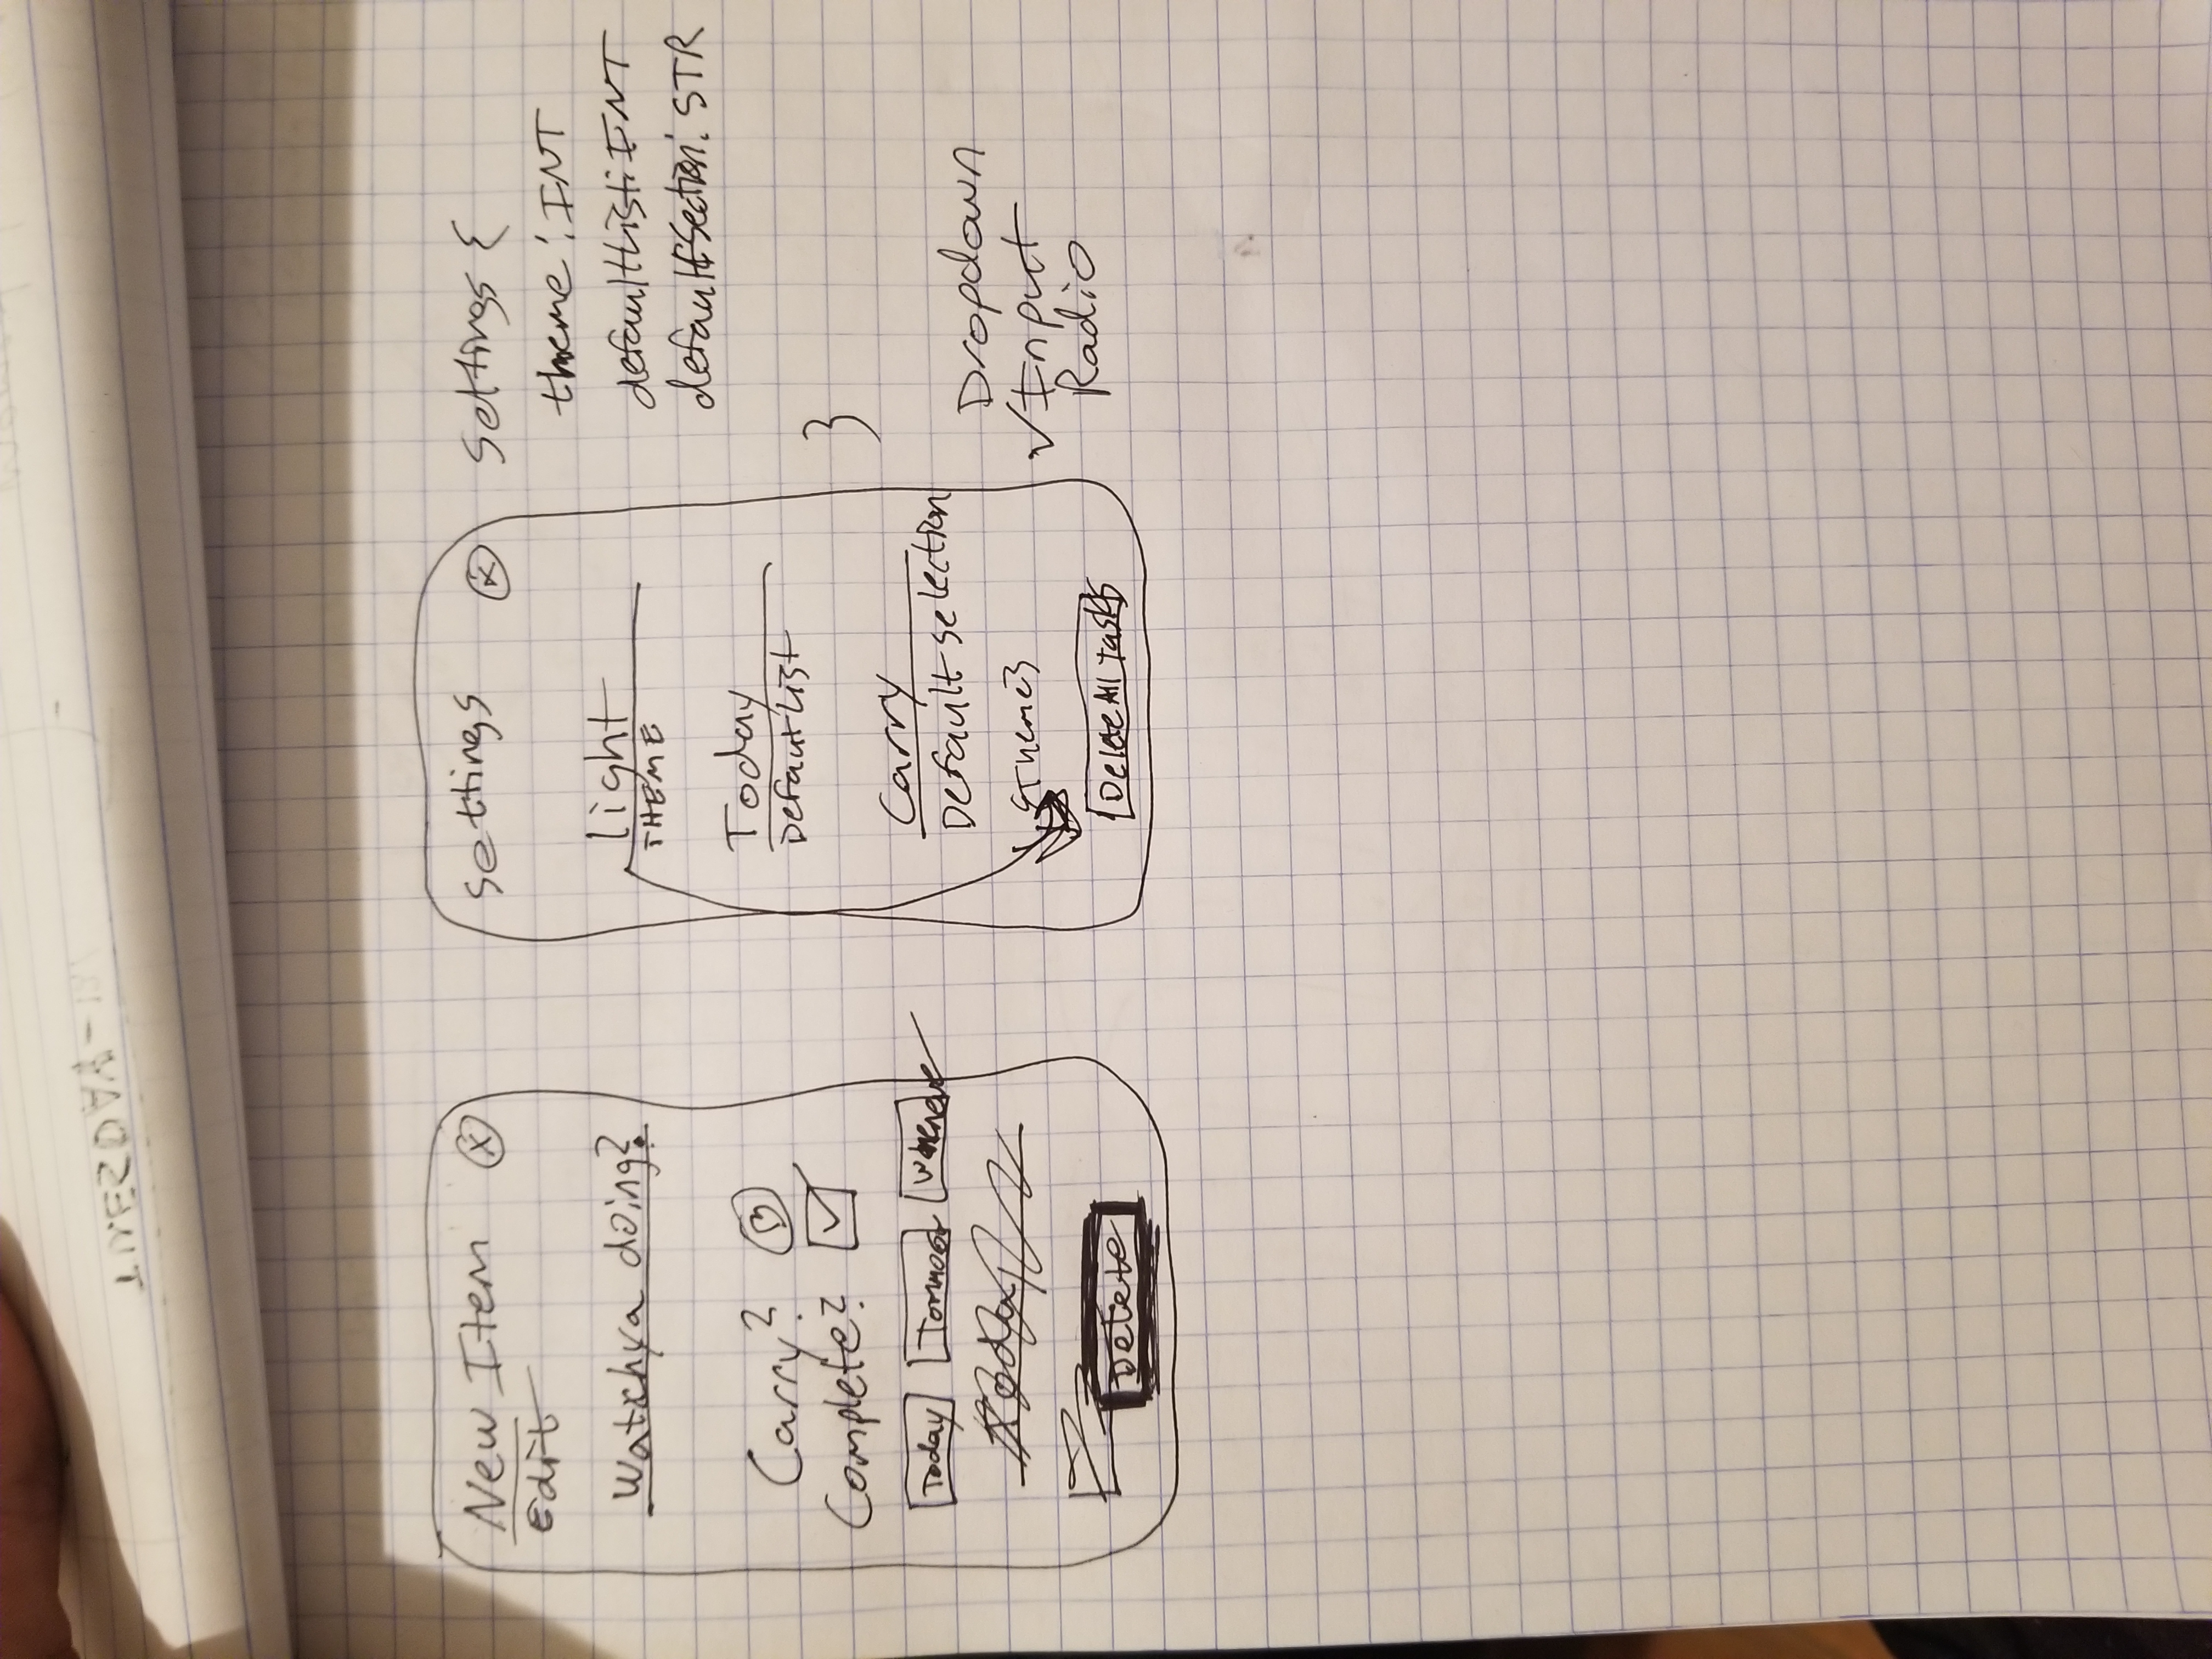 TUESDAY-
New Item X
Edit
Watchya doing?
Carry?
Complete?
Today Tommoor Whenever
Today
Delete
Settings X
light
THEME
Today
Default List
Carry
Default selection
{Theme}
Delete All tasks
Settings {
theme: INT
defaultList: INT
defaultSection: STR
}
Dropdown
Input
Radio